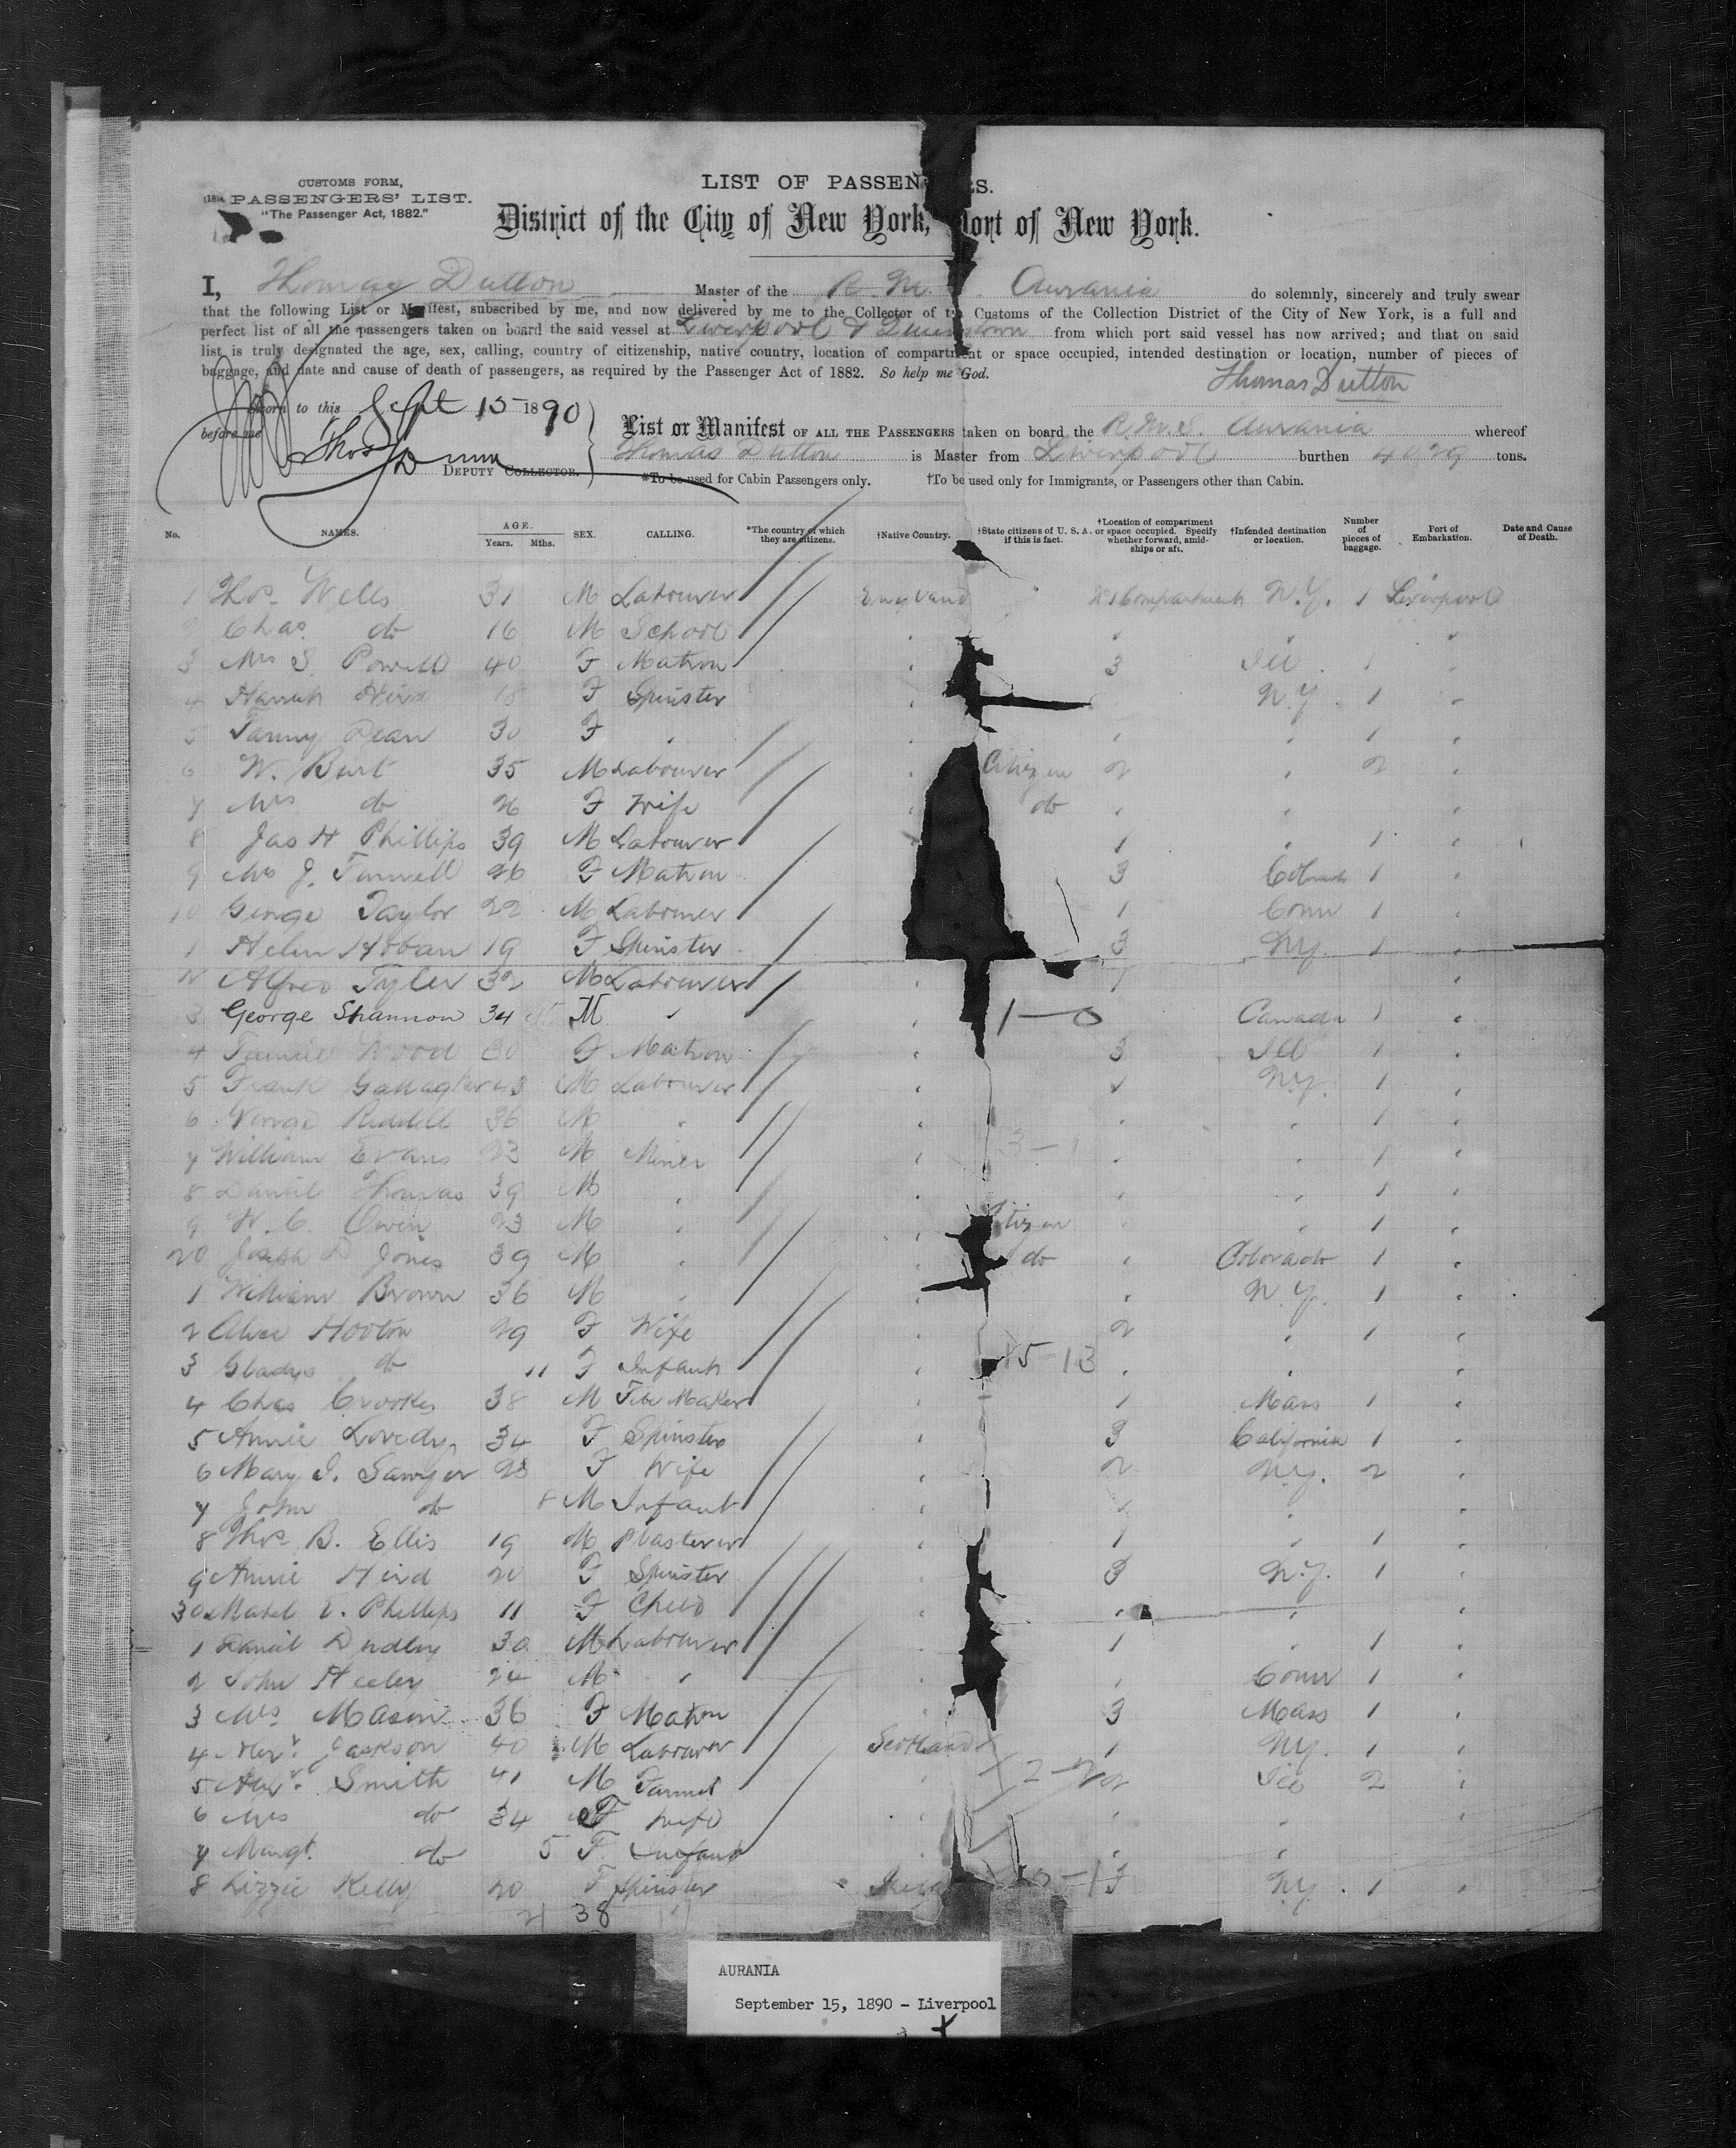 CUSTOMS FORM,
PASSENGERS' LIST.
"The Passenger Act, 1882."
LIST OF PASSEN ES.
District of the City of New York, Port of New York.
I, Thomas Dutton Master of the R. M. Aurania do solemnly, sincerely and truly swear
that the following List or Manifest, subscribed by me, and now delivered by me to the Collector of the Customs of the Collection District of the City of New York, is a full and
perfect list of all the passengers taken on board the said vessel at Liverpool & Queenstown from which port said vessel has now arrived; and that on said
list is truly designated the age, sex, calling, country of citizenship, native country, location of compartment or space occupied, intended destination or location, number of pieces of
baggage, and date and cause of death of passengers, as required by the Passenger Act of 1882. So help me God.
Thomas Dutton
Sworn to this Sept 15 1890
before me
Thos Dunn
DEPUTY COLLECTOR.
List or Manifest OF ALL THE PASSENGERS taken on board the R.M.S. Aurania whereof
Thomas Dutton is Master from Liverpool burthen 4029 tons.
*To be used for Cabin Passengers only. †To be used only for Immigrants, or Passengers other than Cabin.
No. NAMES. AGE. Years. Mths. SEX. CALLING. *The country of which they are citizens. †Native Country. †State citizens of U. S. A. if this is fact. †Location of compartment or space occupied. Specify whether forward, amidships or aft. †Intended destination or location. Number of pieces of baggage. Port of Embarkation. Date and Cause of Death.
1 Thos. Wells 31 M Labourer England No 1 Compartment N.Y. 1 Liverpool
Chas. do 16 M School " " " "
3 Mrs S. Powell 40 F Matron " 3 Ill 1 "
4 Hannah Hird 18 F Spinster " N.Y. 1 "
5 Fanny Dean 30 F " " " " 1 "
6 W. Burt 35 M Labourer " Citizen 2 " 2 "
7 Mrs do 26 F Wife " do " " "
8 Jas H Phillips 39 M Labourer 1 " 1 "
9 Mrs J. Funnell 26 F Matron 3 Colorado 1 "
10 George Taylor 22 M Labourer 1 Conn 1 "
1 Helen Hoban 19 F Spinster 3 N.Y. 1 "
2 Alfred Tyler 32 M Labourer " 1 "
3 George Shannon 34 M " " 1-0 Canada 1 "
4 Wood 30 F Matron " 3 Ill 1 "
5 Frank Gallagher 43 M Labourer " 1 N.Y. 1 "
6 George Riddell 36 M " " " " 1 "
7 William Evans 23 M Miner " 3-1 " " 1 "
8 Daniel Thomas 39 M " " " 1 "
9 W. C. Owen 23 M " " Citizen " " 1 "
20 Joseph D Jones 39 M " " do " Colorado 1 "
1 William Brown 36 M " " " N.Y. 1 "
2 Alice Hooton 29 F Wife " 2 " 1 "
3 Gladys do 11 F Infant " 15-13 " " "
4 Chas Crookes 38 M File Maker " 1 Mass 1 "
5 Annie Loredy 34 F Spinster " 3 California 1 "
6 Mary J. Sawyer 28 F Wife " 2 N.Y. 2 "
7 John do 8 M Infant " " " "
8 Thos B. Ellis 19 M Plasterer " 1 " 1 "
9 Annie Hird 20 F Spinster 3 N.Y. 1 "
30 Mabel V. Phillips 11 F Child " " " "
1 Daniel Dudley 30 M Labourer " 1 " 1 "
2 John Heeley 24 M " " " Conn 1 "
3 Mrs Mason 36 F Matron " 3 Mass 1 "
4 Alexr. Jackson 40 M Labourer Scotland 1 N.Y. 1 "
5 Alexr. Smith 41 M Farmer " 2-2 2 Ill 2 "
6 Mrs do 34 F Wife " " " "
7 Margt. do 5 F Infant " " " "
8 Lizzie Kelly 20 F Spinster 3 N.Y. 1 "
21 38
AURANIA
September 15, 1890 - Liverpool